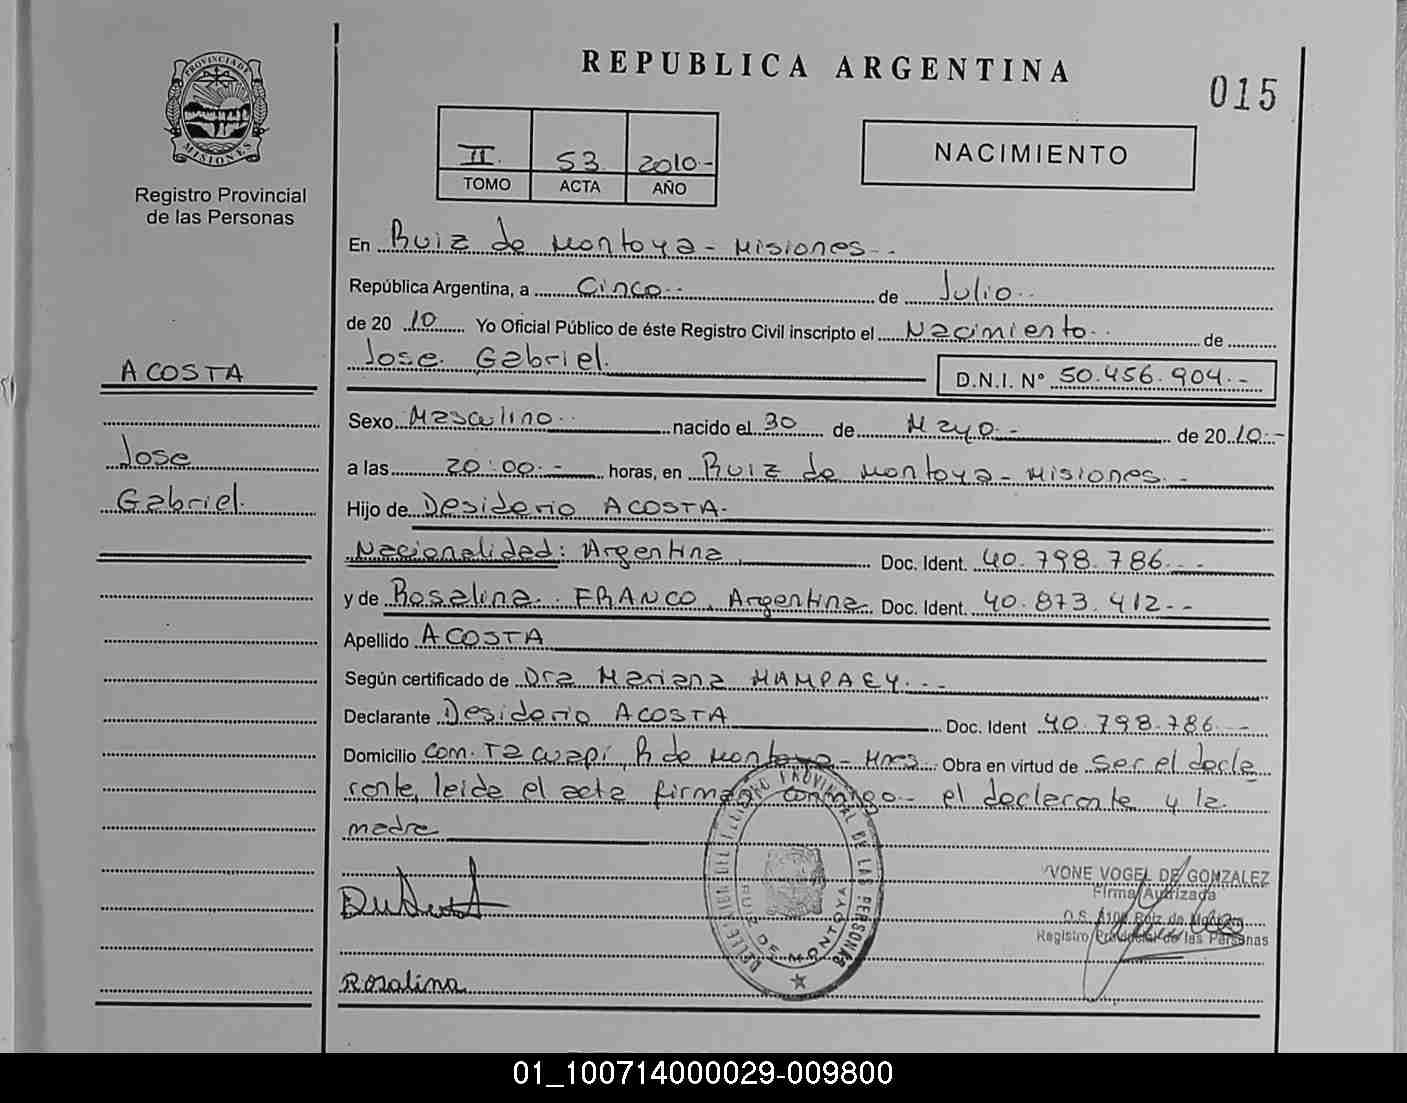 PROVINCIA DE
MISIONES
Registro Provincial
de las Personas
REPUBLICA ARGENTINA
015
II. 53 2010.-
TOMO ACTA AÑO
NACIMIENTO
En Ruiz de Montoya - Misiones..
República Argentina, a Cinco.. de Julio..
de 20 10 Yo Oficial Público de éste Registro Civil inscripto el Nacimiento.. de
Jose Gabriel.
D.N.I. Nº 50.456.904.-
ACOSTA
Jose
Gabriel.
Sexo Masculino.. nacido el 30 de Mayo.- de 20 10.-
a las 20:00.- horas, en Ruiz de Montoya - Misiones.-
Hijo de Desiderio ACOSTA.
Nacionalidad: Argentina. Doc. Ident. 40.798.786.-
y de Rosalina.. FRANCO. Argentina. Doc. Ident. 40.873.412.-
Apellido ACOSTA
Según certificado de Dra Mariana MAMPAEY.-
Declarante Desiderio ACOSTA Doc. Ident 40.798.786.-
Domicilio Com. Tacuapi, R de Montoya - Mnes. Obra en virtud de Ser el decla
rante, leida el acta firman conmigo - el declarante y la
madre
YVONE VOGEL DE GONZALEZ
Firma Autrizada
Ruiz de Montoya
Registro Provincial de las Personas
DELEGACION DEL REGISTRO PROVINCIAL DE LAS PERSONAS
RUIZ DE MONTOYA
Rosalina
01_100714000029-009800